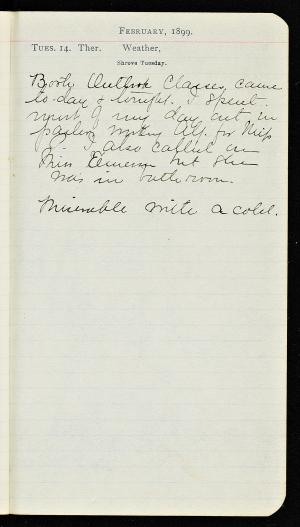 FEBRUARY, 1899.
TUES. 14. Ther. Weather,
Shrove Tuesday.
Books Outlook Classes, came
to-day & tonight. I spent
most of my day out in
parlor writing for Miss
P. I also called on
Miss but she
was in bathroom.
Miserable with a cold.